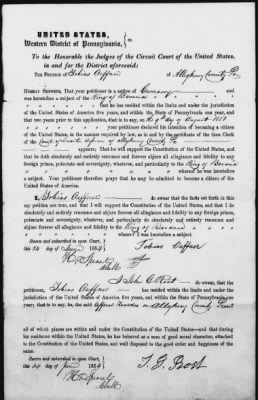 UNITED STATES,
Western District of Pennsylvania, } ss.
To the Honorable the Judges of the Circuit Court of the United States,
in and for the District aforesaid:
THE PETITION OF Tobias Caffner of Allegheny County Pa
HUMBLY SHEWETH, That your petitioner is a native of Germany and
was heretofore a subject of the King of Bavaria
that he has resided within the limits and under the jurisdiction
of the United States, five years, and within the State of Pennsylvania one year, and that
two years prior to this application, that is to say, on the day of August
your petitioner declared his intention of becoming a citizen
of the United States, in the manner required by law, as in and by the certificate of the clerk
of the Court of Quarter Sessions of Allegheny County Pa
appears; That he will support the Constitution of the United States,
that he doth absolutely and entirely renounce and abjure all allegiance and fidelity to any
foreign prince, potentate and sovereignty, whatever, and particularly to the King of Bavaria
whereof he was heretofore
a subject. Your petitioner therefore prays that he may be admitted to become a citizen of the
United States of America.
I, Tobias Caffner do swear that the facts set forth in this
my petition are true, and that I will support the Constitution of the United States, and that I do
absolutely and entirely renounce and abjure forever all allegiance and fidelity to any foreign prince,
potentate and sovereignty, whatever, and particularly do absolutely and entirely renounce and
abjure forever all allegiance and fidelity to the King of Bavaria
whereof I was heretofore a subject.
Sworn and subscribed in open Court,
this 24 day of June 1854 } Tobias Caffner
Clerk
I do swear, that the
petitioner, Tobias Caffner has resided within the limits and under the
jurisdiction of the United States of America five years, and within the State of Pennsylvania one
year, that is to say, he said Caffner Resides in Allegheny County
all of which places are within and under the Constitution of the United States—and that during
his residence within the United States, he has behaved as a man of good moral character, attached
to the Constitution of the United States, and well disposed to the good order and happiness of
the same.
Sworn and subscribed in open Court,
this 24 day of June 1854 }
Clerk